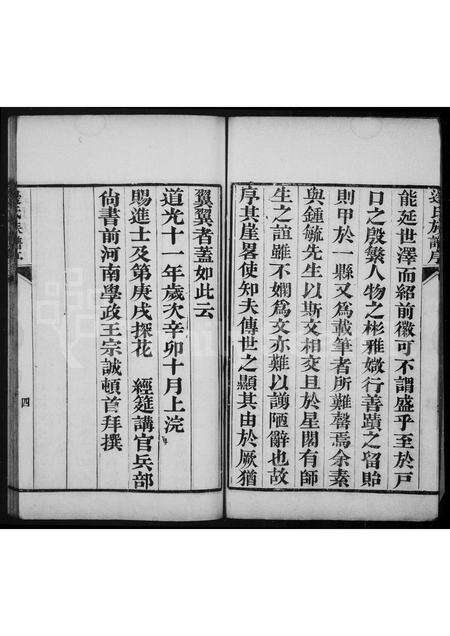 能延世澤而紹前徽可不謂盛乎至於戶
口之殷繁人物之彬雅媺行善蹟之留貽
則甲於一縣又為載筆者所難罄焉余素
與鍾毓先生以斯文相交且於星閣有師
生之誼雖不嫻為文亦難以謭陋辭也故
序其崖畧使知夫傳世之顯其由於厥猶
翼翼者蓋如此云
道光十一年歲次辛卯十月上浣
賜進士及第庚戌探花 經筵講官兵部
尙書前河南學政王宗誠頓首拜撰
四